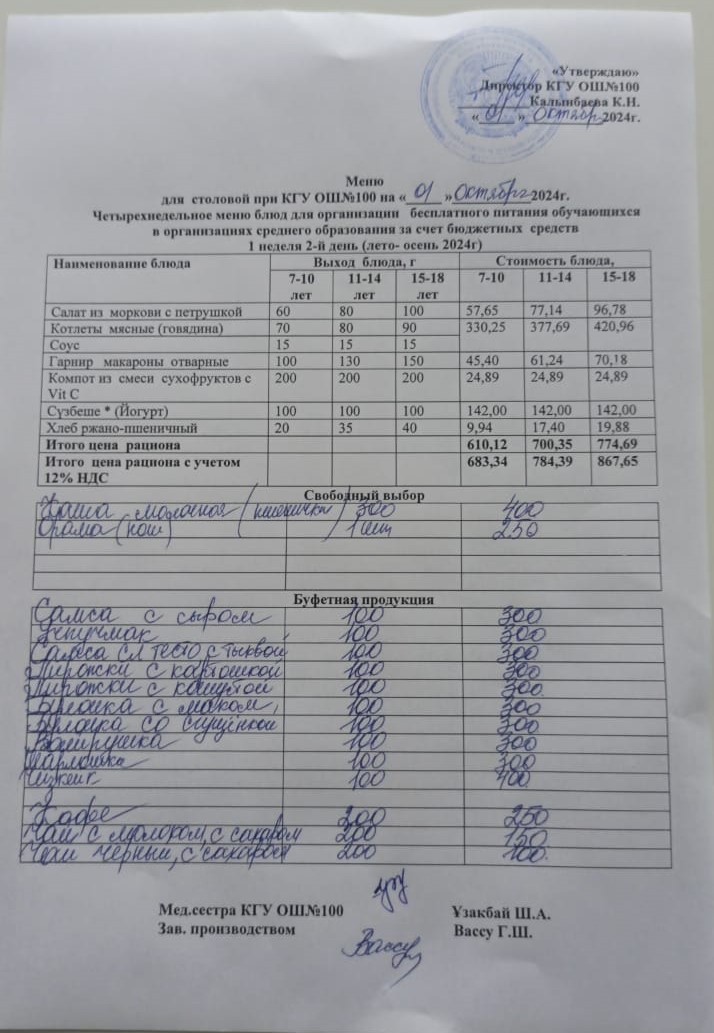 «Утверждаю»
Директор КГУ ОШ№100
Калынбаева К.Н.
« 01 » Октябрь 2024г.
Меню
для столовой при КГУ ОШ№100 на « 01 » Октября 2024г.
Четырехнедельное меню блюд для организации бесплатного питания обучающихся
в организациях среднего образования за счет бюджетных средств
1 неделя 2-й день (лето- осень 2024г)
Наименование блюда Выход блюда, г Стоимость блюда,
7-10 лет 11-14 лет 15-18 лет 7-10 11-14 15-18
Салат из моркови с петрушкой 60 80 100 57,65 77,14 96,78
Котлеты мясные (говядина) 70 80 90 330,25 377,69 420,96
Соус 15 15 15
Гарнир макароны отварные 100 130 150 45,40 61,24 70,18
Компот из смеси сухофруктов с 200 200 200 24,89 24,89 24,89
Vit C
Сүзбеше * (Йогурт) 100 100 100 142,00 142,00 142,00
Хлеб ржано-пшеничный 20 35 40 9,94 17,40 19,88
Итого цена рациона 610,12 700,35 774,69
Итого цена рациона с учетом 683,34 784,39 867,65
12% НДС
Свободный выбор
Каша молочная ( 300 400
Орама (нош) 1 шт 250
Буфетная продукция
Самса с сыром 100 300
Учпучмак 100 300
Самса сл тесто с тыквой 100 300
Пирожки с картошкой 100 300
Пирожки с капустой 100 300
Булочка с маком, 100 300
Булочка со сгущёнкой 100 300
Ватрушка 100 300
100 300
Чизкейк 100 400
Кофе 200 250
Чай с молоком, с сахаром 200 150
Чай черный, с сахаром 200 100.
Мед.сестра КГУ ОШ№100 Ұзакбай Ш.А.
Зав. производством Вассу Г.Ш.
Вассу